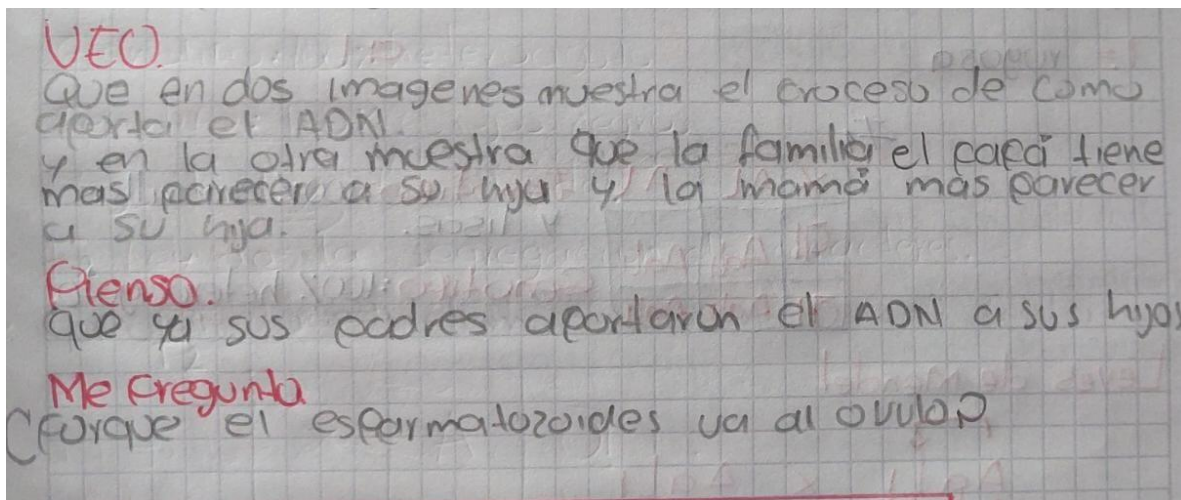 VEO.
Que en dos imagenes muestra el proceso de como
aporta el ADN.
y en la otra muestra que la familia el papá tiene
mas parecer a su hija y la mamá más parecer
a su hija.
Pienso.
que ya sus padres aportaron el ADN a sus hijos
Me Pregunta
¿Porque el espermatozoides va al ovulo?